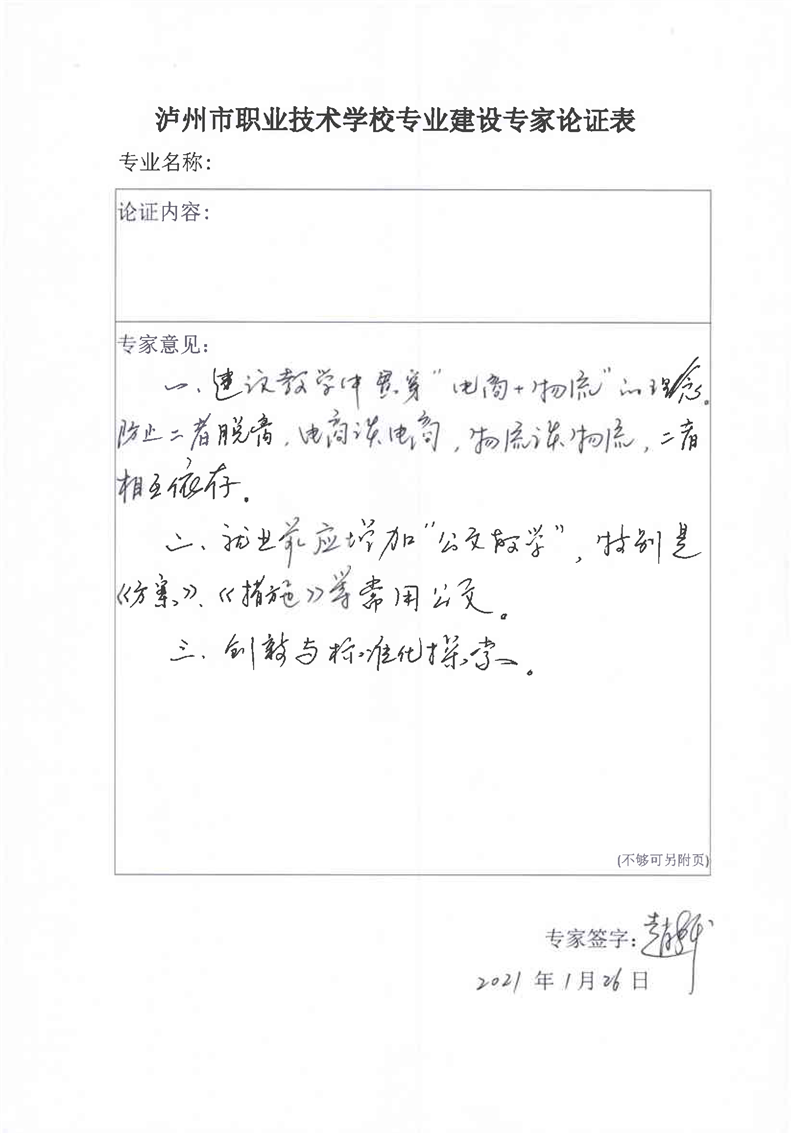 泸州市职业技术学校专业建设专家论证表
专业名称：
论证内容：
专家意见：
一、建议教学中贯穿“电商+物流”的理念。
防止二者脱离，电商谈电商，物流谈物流，二者
相互依存。
二、就业前应增加“公文教学”，特别是
《方案》、《措施》等常用公文。
三、创新与标准化探索。
(不够可另附页)
专家签字：
2021年1月26日